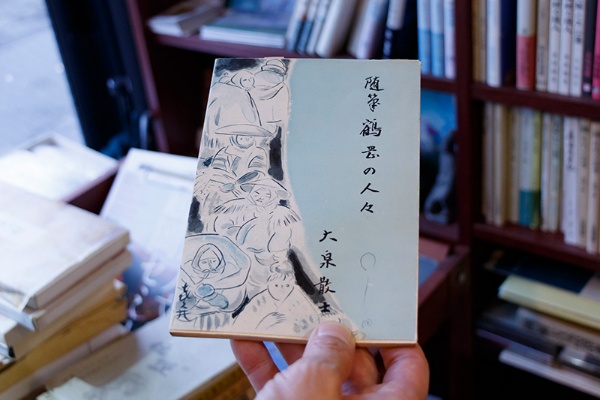 随筆鶴岡の人々
大泉散士